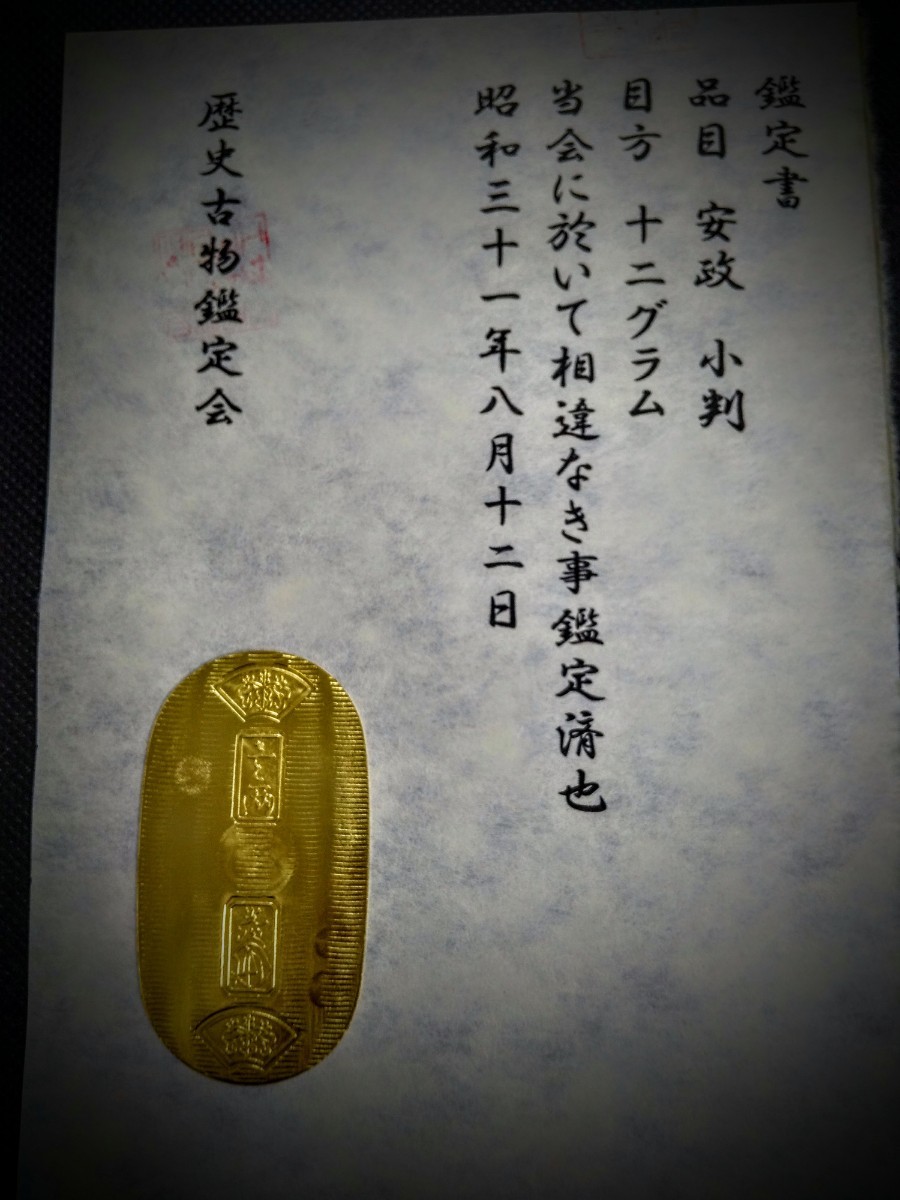 鑑定書
品目 安政 小判
目方 十二グラム
当会に於いて相違なき事鑑定済也
昭和三十一年八月十二日
歴史古物鑑定会
壹两